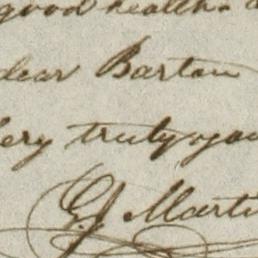 good health.
dear Barton
very truly you
G J Marti